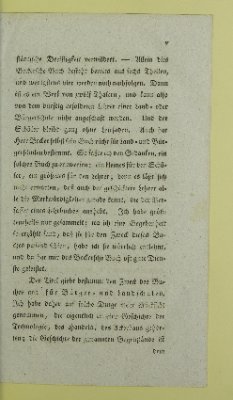 V
städtische Dreistigkeit verwildert. — Allein das
Beckersche Buch besteht bereits aus sechs Theilen,
und wenigstens vier werden noch nachfolgen. Dann
ist es ein Werk von zwölf Thalern, und kann also
von dem dürftig besoldeten Lehrer einer Land- oder
Bürgerschule nicht angeschafft werden. Und der
Schüler bleibt ganz ohne Leitfaden. Auch hat
Herr Becker selbst sein Buch nicht für Land- und Bür-
gerschulen bestimmt. Sie haben den Gedanken, ein
solches Buch zu erweitern: ein kleines für den Schü-
ler, ein größeres für den Lehrer, denn es läßt sich
nicht erwarten, daß auch der geschickteste Lehrer al-
le die Merkwürdigkeiten gerade kennt, die der Ver-
fasser eines Lehrbuches aushebt. Ich habe größ-
tentheils nur gesammelt; wo ich eine Begebenheit
so erzählt fand, daß sie für den Zweck dieses Bu-
ches passend schien, habe ich sie wörtlich entlehnt,
und da hat mir das Beckersche Buch oft gute Dien-
ste geleistet.
Der Titel giebt bestimmt den Zweck des Bu-
ches an: für Bürger- und Landschulen.
Ich habe daher auf solche Dinge mehr Rücksicht
genommen, die eigentlich in eine Geschichte der
Technologie, des Handels, des Ackerbaus gehör-
ten; die Geschichte der genannten Gegenstände ist
dem